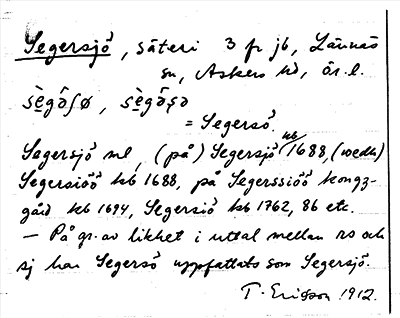 Segersjö, säteri 3 fr jb, Lännäs
sn, Askers hd, ör. l.
sègâʃø, sègâșə
= Segersö.
Segersjö ml, (på) Segersjö kb 1688, (wedh)
Segersiöö kb 1688, på Segerssiöö kongz-
gård kb 1694, Segersiö kb 1762, 86 etc.
— På gr. av likhet i uttal mellan rs och
sj har Segersö uppfattats som Segersjö.
T. Ericsson 1912.